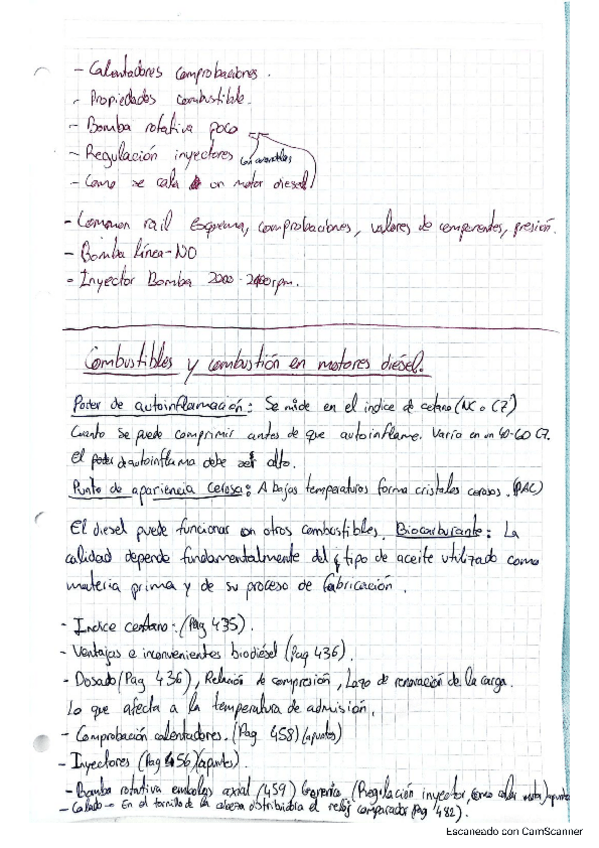 - Calentadores comprobaciones.
- Propiedades combustible.
- Bomba rotativa poco
- Regulación inyectores con arandelas
- Como se cala un motor diesel
- Common rail Esquema, comprobaciones, valores de componentes, presión.
- Bomba línea - NO
- Inyector Bomba 2000 - 2400 rpm.
Combustibles y combustión en motores diésel.
Poder de autoinflamación: Se mide en el indice de cetano (NC o CZ)
Cuanto se puede comprimir antes de que autoinflame. Varía en un 40-60 CZ.
El poder de autoinflama debe ser alto.
Punto de apariencia cerosa: A bajas temperaturas forma cristales cerosos. (PAC)
El diesel puede funcionar con otros combustibles. Biocarburante: La
calidad depende fundamentalmente del tipo de aceite utilizado como
materia prima y de su proceso de fabricación.
- Indice centano: (Pag 435).
- Ventajas e inconvenientes biodiésel (Pag 436).
- Dosado (Pag 436), Relación de compresión, Lazo de renovación de la carga.
Lo que afecta a la temperatura de admisión.
- Comprobación calentadores. (Pag 458) (apuntes)
- Inyectores (Pag 456) (apuntes).
- Bomba rotativa embolos axial (459) Generico (Regulación inyector, como calar motor) apuntes
- Calado - En el tornillo de la cabeza distribuidora el reloj comparador (Pag 482).
Escaneado con CamScanner